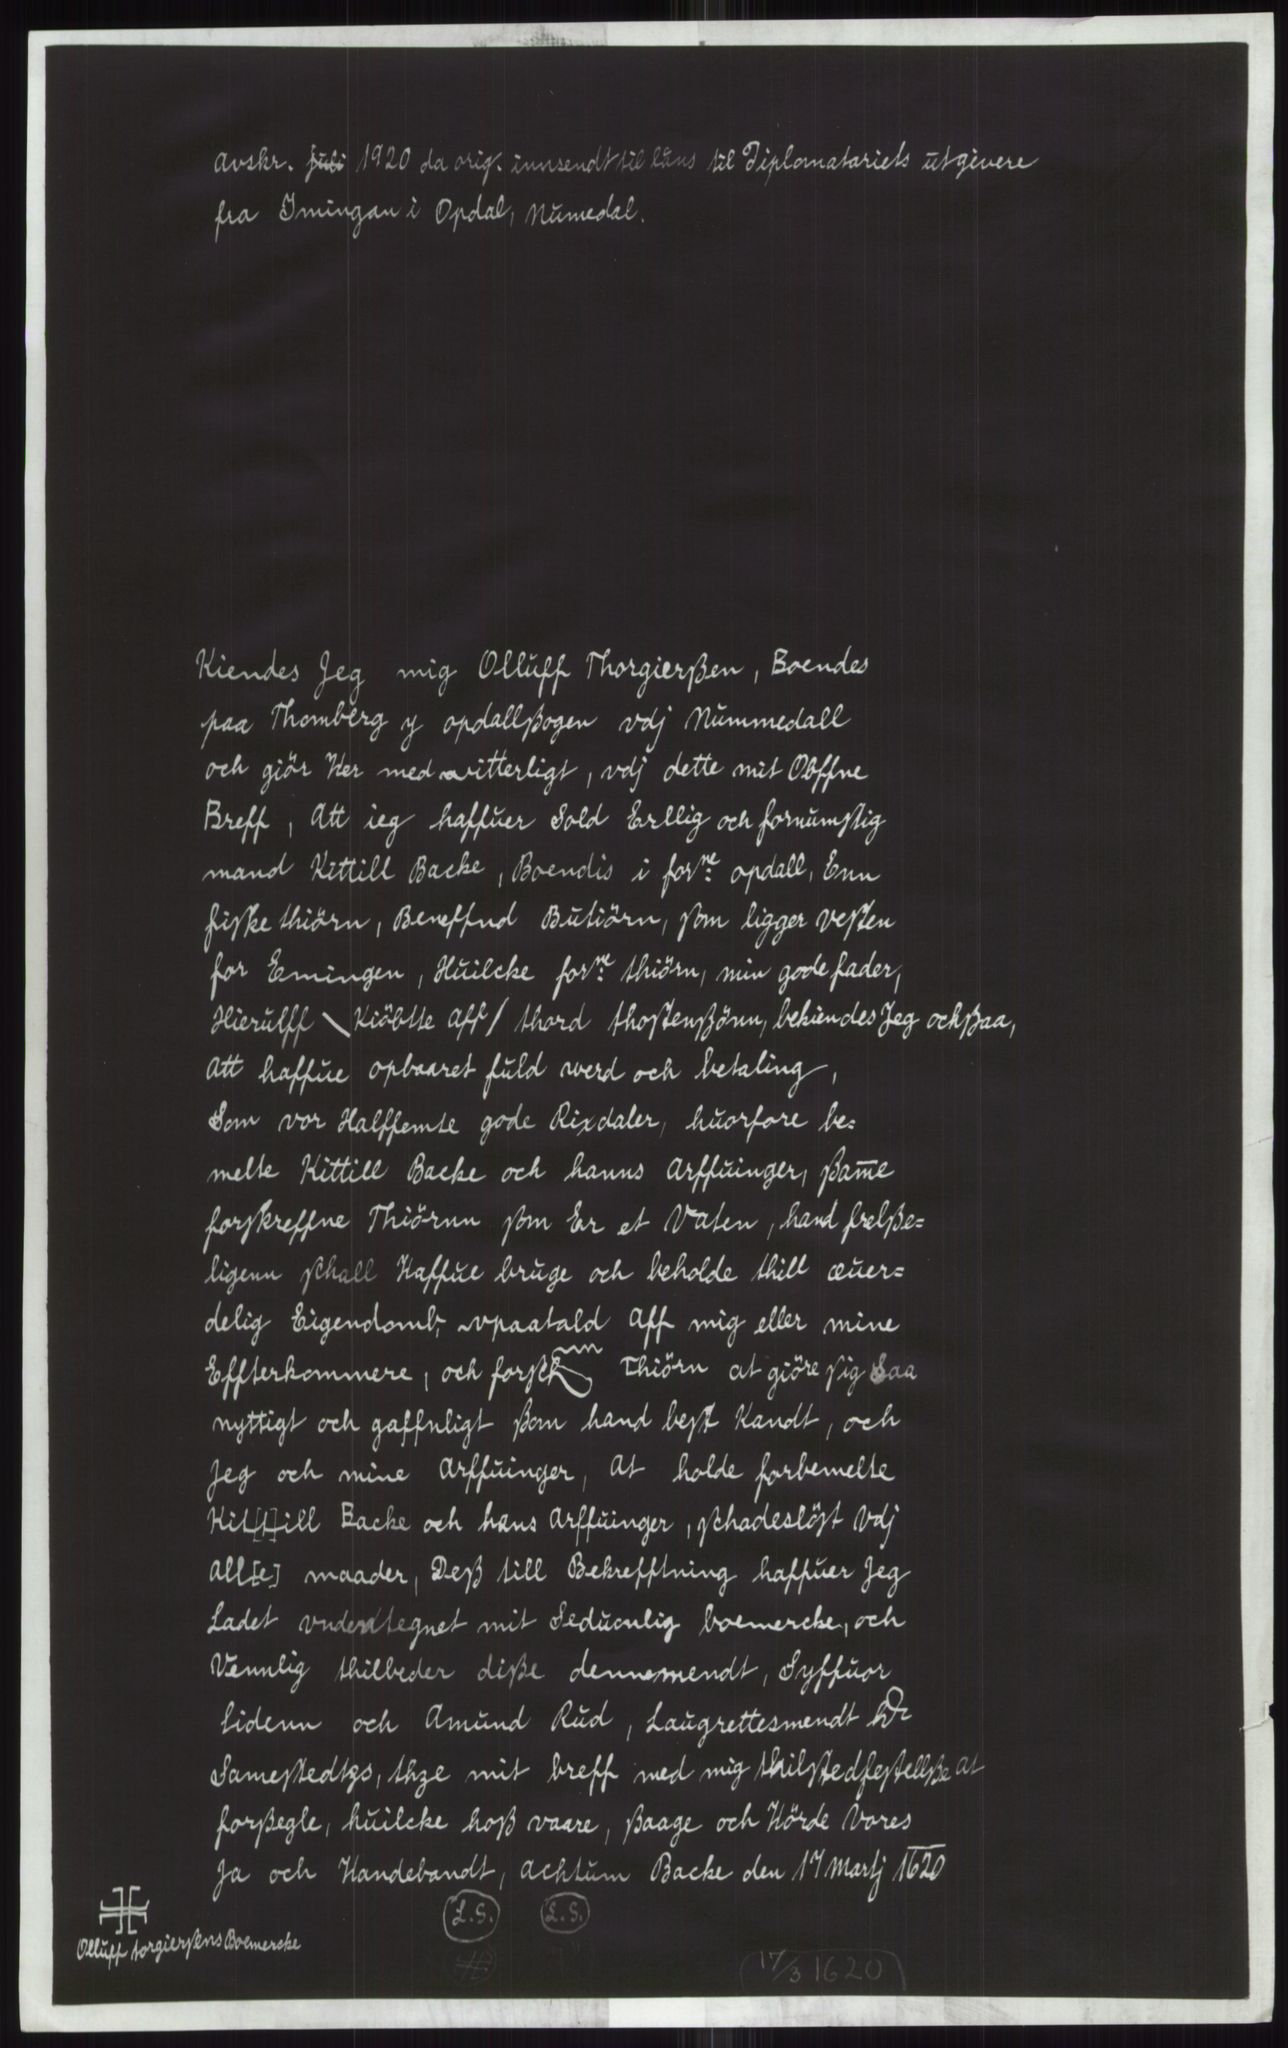 avskr. juli 1920 da orig. innsendt til låns til Diplomatariets utgivere
fra Imingan i Opdal, Numedal.
Kiendes Jeg mig Olluff Thorgierßen, Boendes
paa Thomberg y opdallßogen vdj Nummedall
och giör Her med witterligt, vdj dette mit Obffne
Breff, Att ieg haffuer Sold Erllig och fornumstig
mand Kittill Backe, Boendis i forne: opdall, Enn
fiske thiörn, Beneffnd Butiörn, som ligger vesten
for Emingen, Huilcke forne: thiörn, min gode fader,
Hierulff \ Kiöbtte Aff / thord thostenßönn, bekiendes Jeg ochßaa,
Att haffue opbaaret fuld werd och betaling,
Som vor Halffemte gode Rixdaler, huorfore be=
melte Kittill Backe och hanns Arffuinger, ßam̅e
forskreffne Thiörnn som Er et Vaten, hand frelße=
ligenn schall Haffue bruge och beholde thill æuer=
delig Eigendomb, vpaatald Aff mig eller mine
Effterkommere, och Thiörn at giöre sig Saa
nyttigt och gaffnligt som hand best Kandt, och
Jeg och mine Arffuinger, At holde forbemelte
Kit[t]ill Backe och hans Arffuinger, schadeslöst vdj
All[e] maader, Deß till Bekrefftning haffuer Jeg
Ladet vnderdtegnet mit boemercke, och
Vennlig thilbeder diße dennemendt, Syffuor
Lidenn och Amund Rud, Laugrettesmendt
mit breff med mig At
forßegle, huilcke hoß vaare, ßaage och Hörde Vores
Ja och Handebandt, Achtum Backe den 17 Martj 1620
L.S. L.S.
Olluff torgierßens Boemercke
17/3 1620